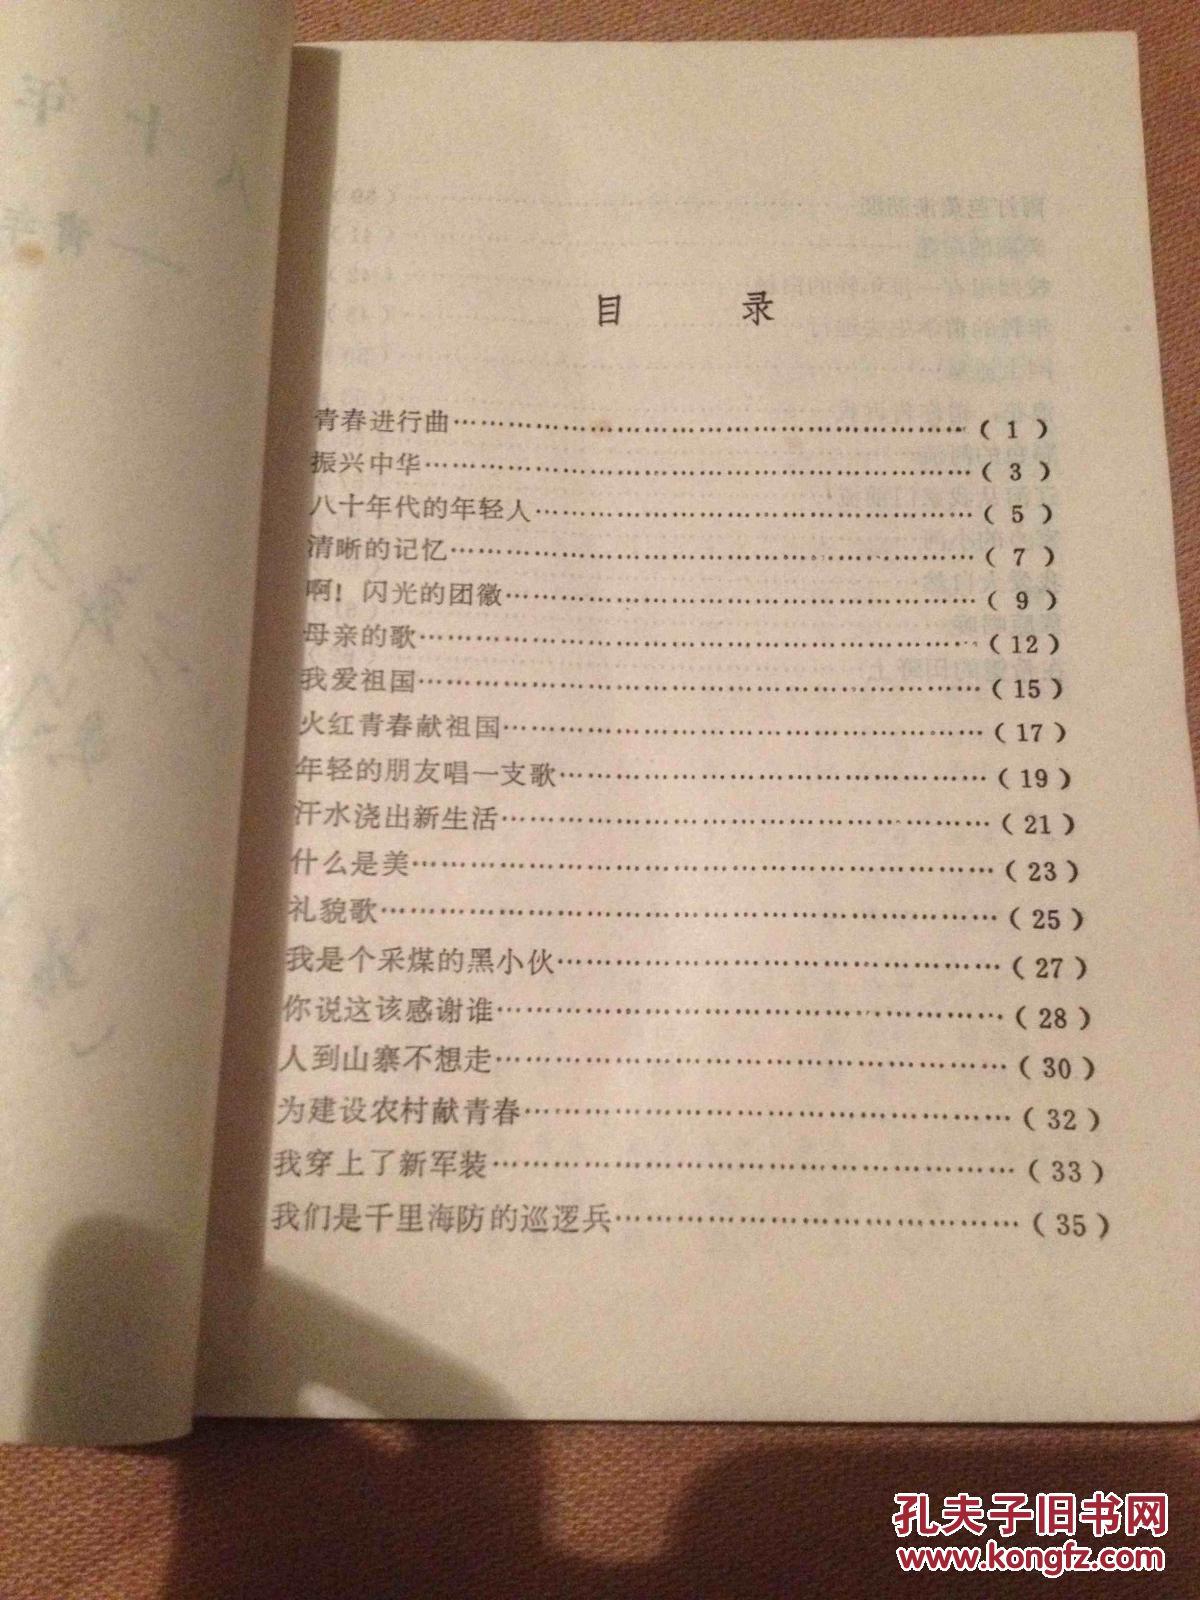 目 录
青春进行曲……………………………………………………(1)
振兴中华………………………………………………………(3)
八十年代的年轻人……………………………………………(5)
清晰的记忆……………………………………………………(7)
啊！闪光的团徽………………………………………………(9)
母亲的歌………………………………………………………(12)
我爱祖国………………………………………………………(15)
火红青春献祖国………………………………………………(17)
年轻的朋友唱一支歌…………………………………………(19)
汗水浇出新生活………………………………………………(21)
什么是美………………………………………………………(23)
礼貌歌…………………………………………………………(25)
我是个采煤的黑小伙…………………………………………(27)
你说这该感谢谁………………………………………………(28)
人到山寨不想走………………………………………………(30)
为建设农村献青春……………………………………………(32)
我穿上了新军装………………………………………………(33)
我们是千里海防的巡逻兵……………………………………(35)
孔夫子旧书网
www.kongfz.com